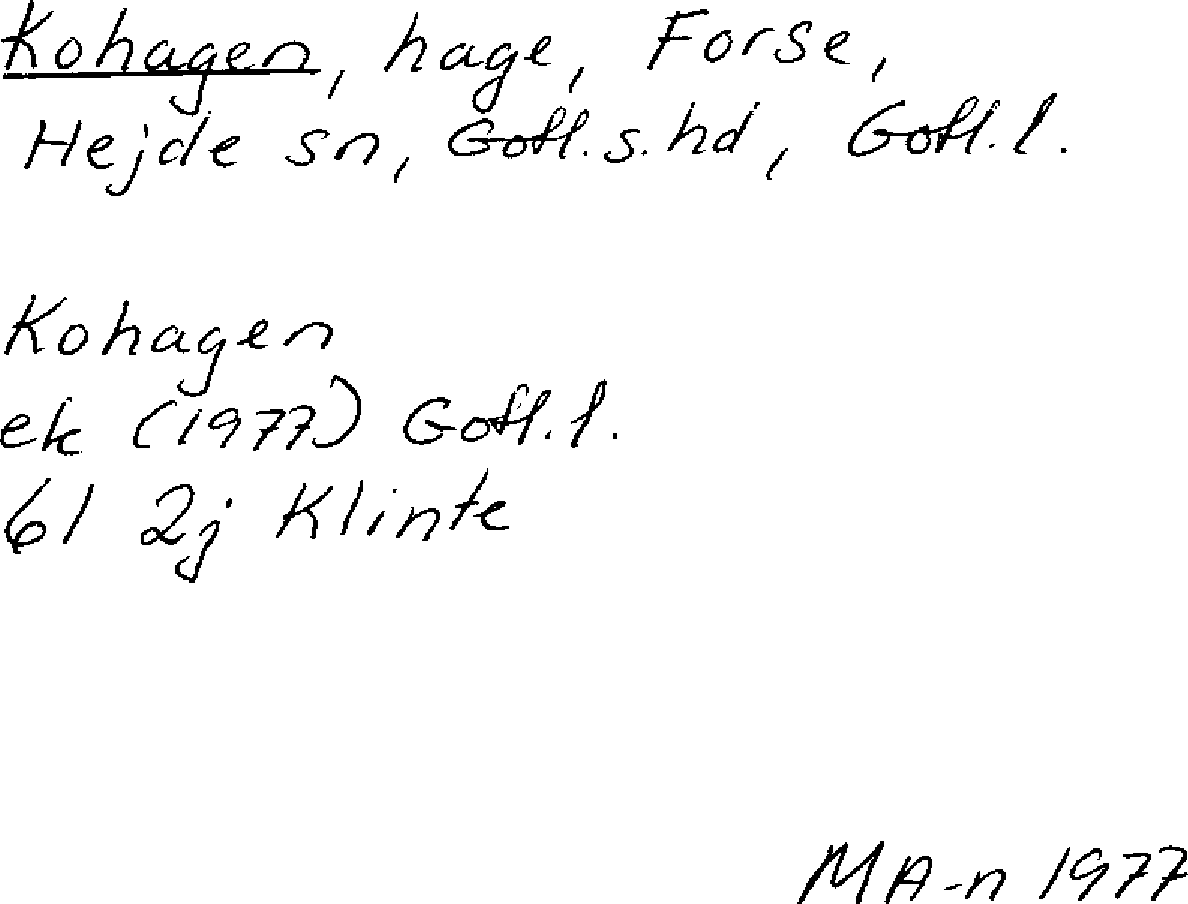 Kohagen, hage, Forse,
Hejde sn, Gotl.s.hd, Gotl.l.
Kohagen
ek (1977) Gotl.l.
6I 2j Klinte
MA-n 1977